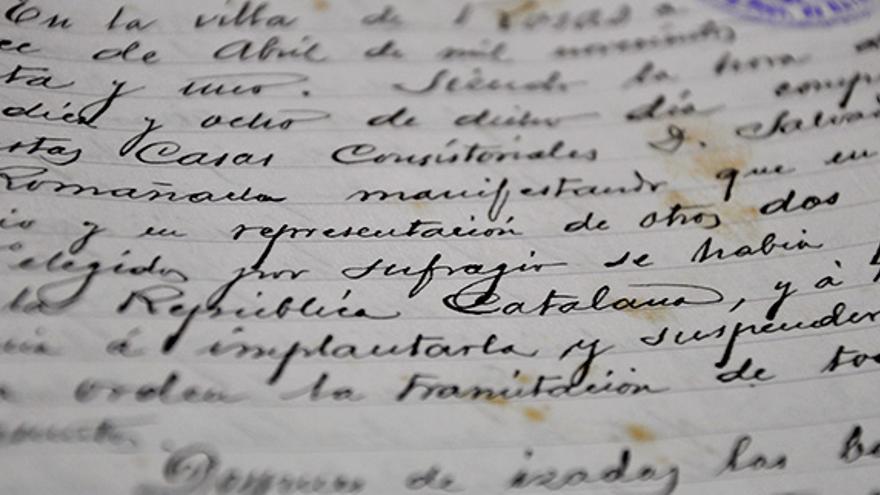 En la villa de Rosas a
de Abril de mil novecientos
ta y uno. Siendo la hora
diez y ocho de dicho día comp
stas Casas Consistoriales D. Salvad
Romañach manifestando que en
io y en representación de otros dos
elegidos por sufragio se había
la República Catalana, y á
á implantarla y suspender
orden la tramitación de to
Despues de izadas las ba